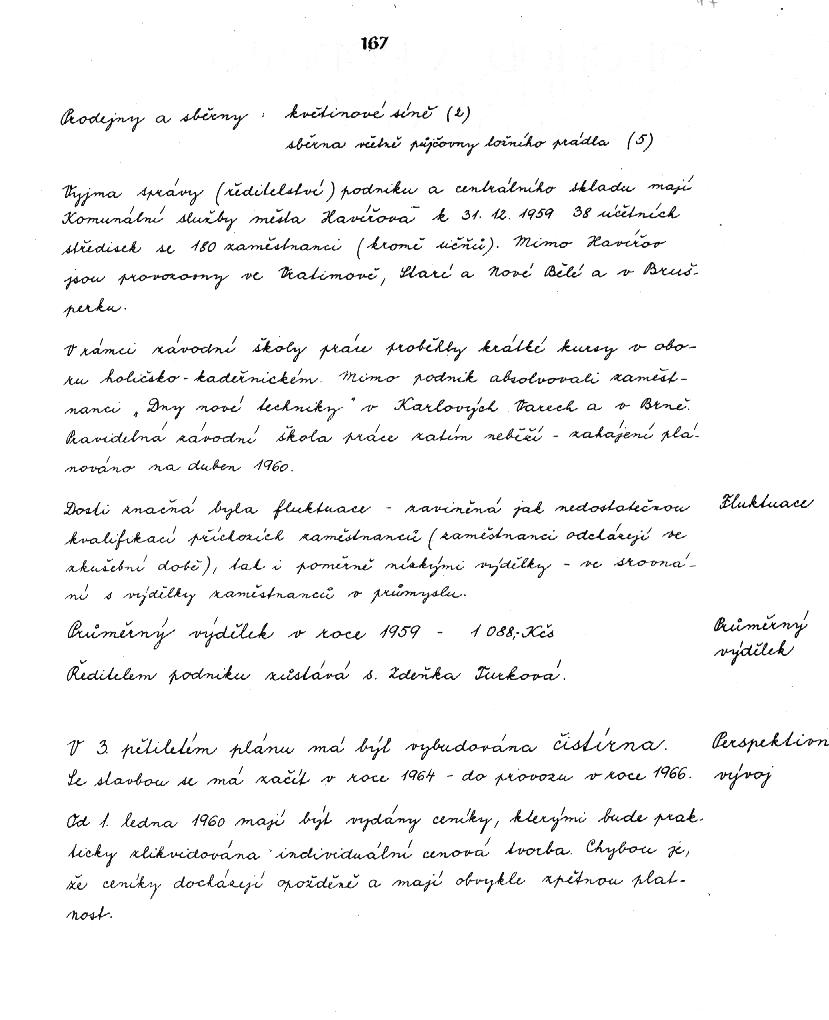 167
Prodejny a sběrny : květinové síně (2)
sběrna včetně půjčovny ložního prádla (5)
Vyjma správy (ředitelství) podniku a centrálního skladu mají
Komunální služby města Havířova k 31. 12. 1959 38 účetních
středisek se 180 zaměstnanci (kromě učňů). Mimo Havířov
jsou provozovny ve Vratimově, Staré a Nové Bělé a v Bruš-
perku.
V rámci závodní školy práce proběhly krátké kursy v obo-
ru holičsko-kadeřnickém. Mimo podnik absolvovali zaměst-
nanci "Dny nové techniky" v Karlových Varech a v Brně.
Pravidelná závodní škola práce zatím neběží - zahájení plá-
nováno na duben 1960.
Dosti značná byla fluktuace - zaviněná jak nedostatečnou
Fluktuace
kvalifikací příchozích zaměstnanců (zaměstnanci odcházejí ve
zkušební době), tak i poměrně nízkými výdělky - ve srovná-
ní s výdělky zaměstnanců v průmyslu.
Průměrný výdělek v roce 1959 - 1 088,- Kčs
Průměrný
výdělek
Ředitelem podniku zůstává s. Zdeňka Turková.
V 3. pětiletém plánu má být vybudována čistírna.
Perspektivn
Se stavbou se má začít v roce 1964 - do provozu v roce 1966.
vývoj
Od 1. ledna 1960 mají být vydány ceníky, kterými bude prak-
ticky zlikvidována individuální cenová tvorba. Chybou je,
že ceníky docházejí opožděně a mají obvykle zpětnou plat-
nost.